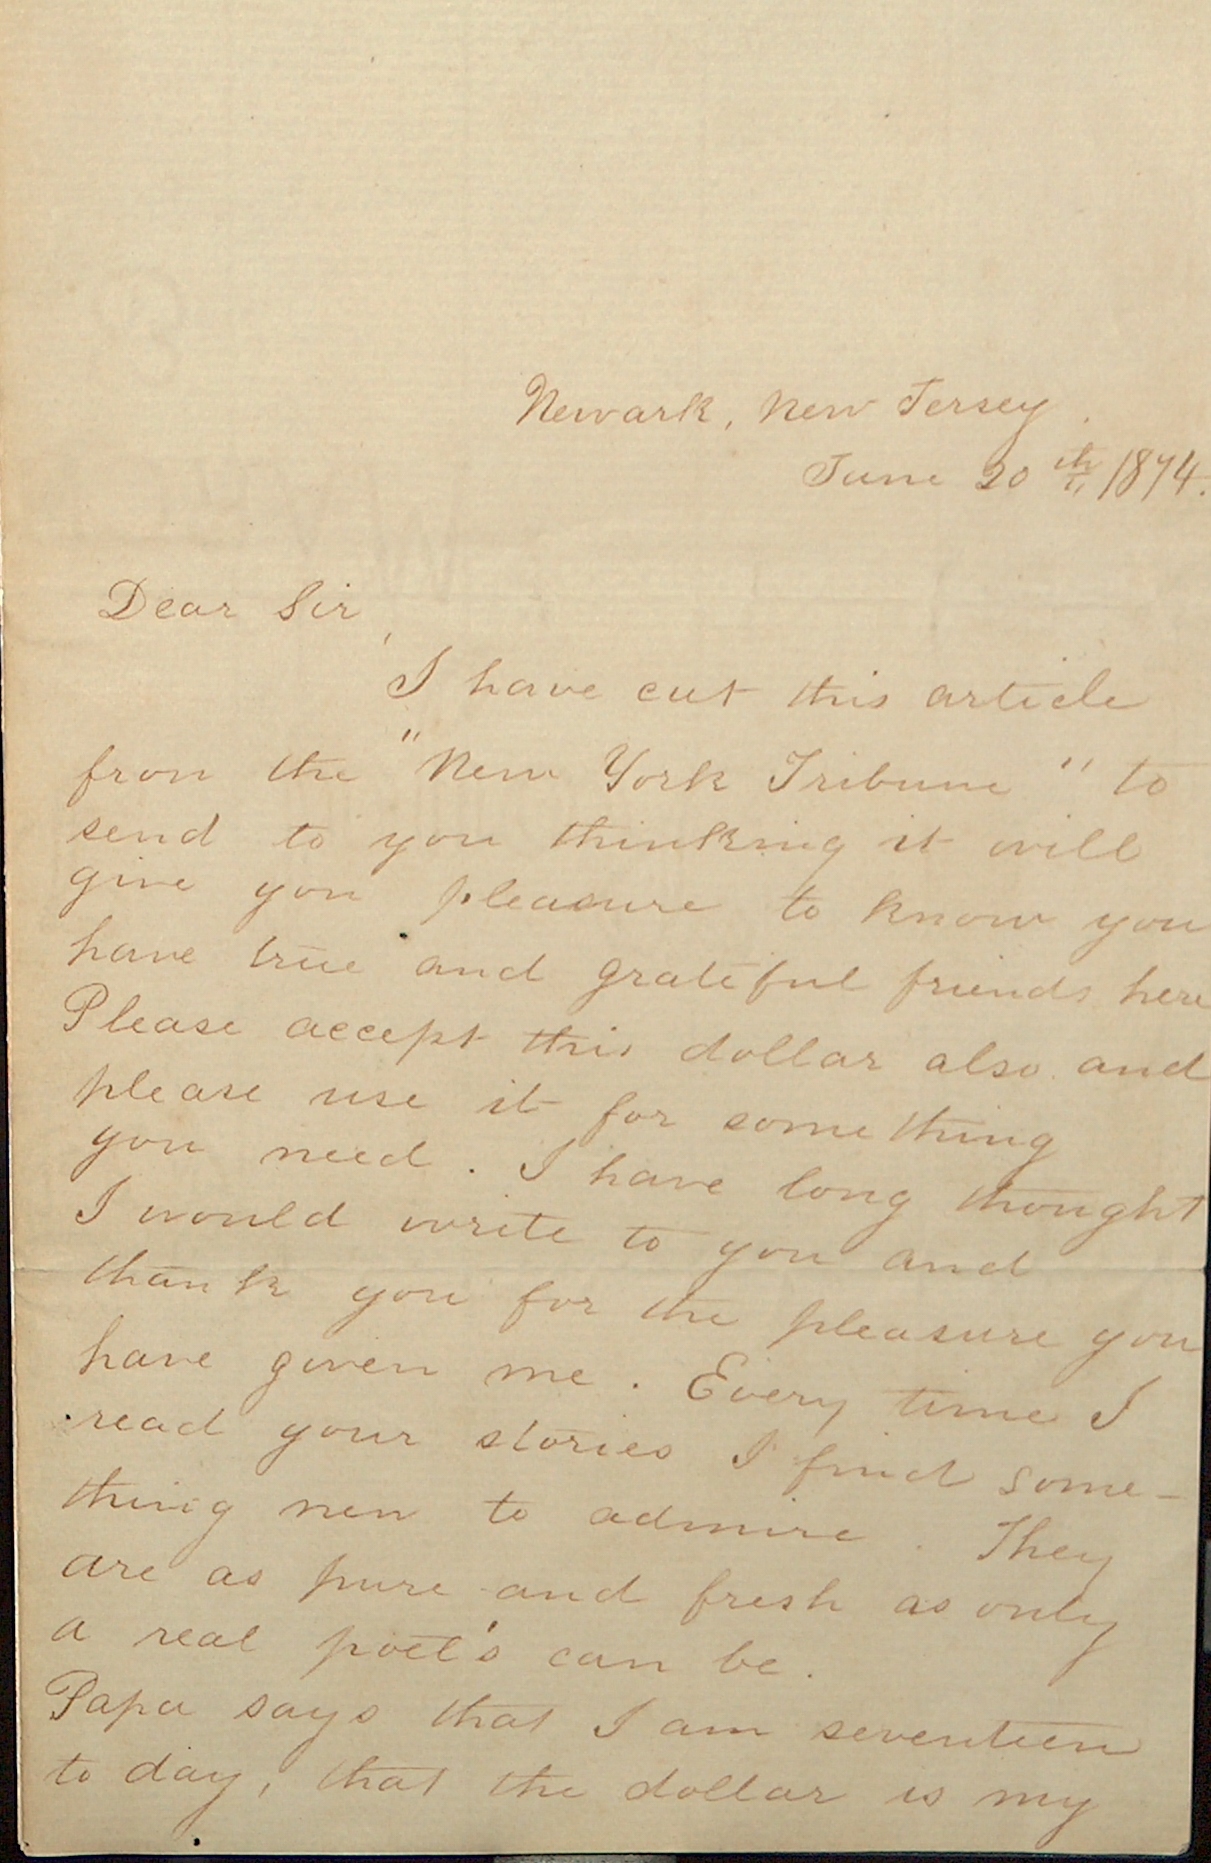 Newark, New Jersey.
June 20th 1874.
Dear Sir,
I have cut this article
from the "New York Tribune" to
send to you thinking it will
give you pleasure to know you
have true and grateful friends here
Please accept this dollar also and
please use it for something
you need. I have long thought
I would write to you and
thank you for the pleasure you
have given me. Every time I
read your stories I find some-
thing new to admire. They
are as pure and fresh as only
a real poet's can be.
Papa says that I am seventeen
to day, that the dollar is my